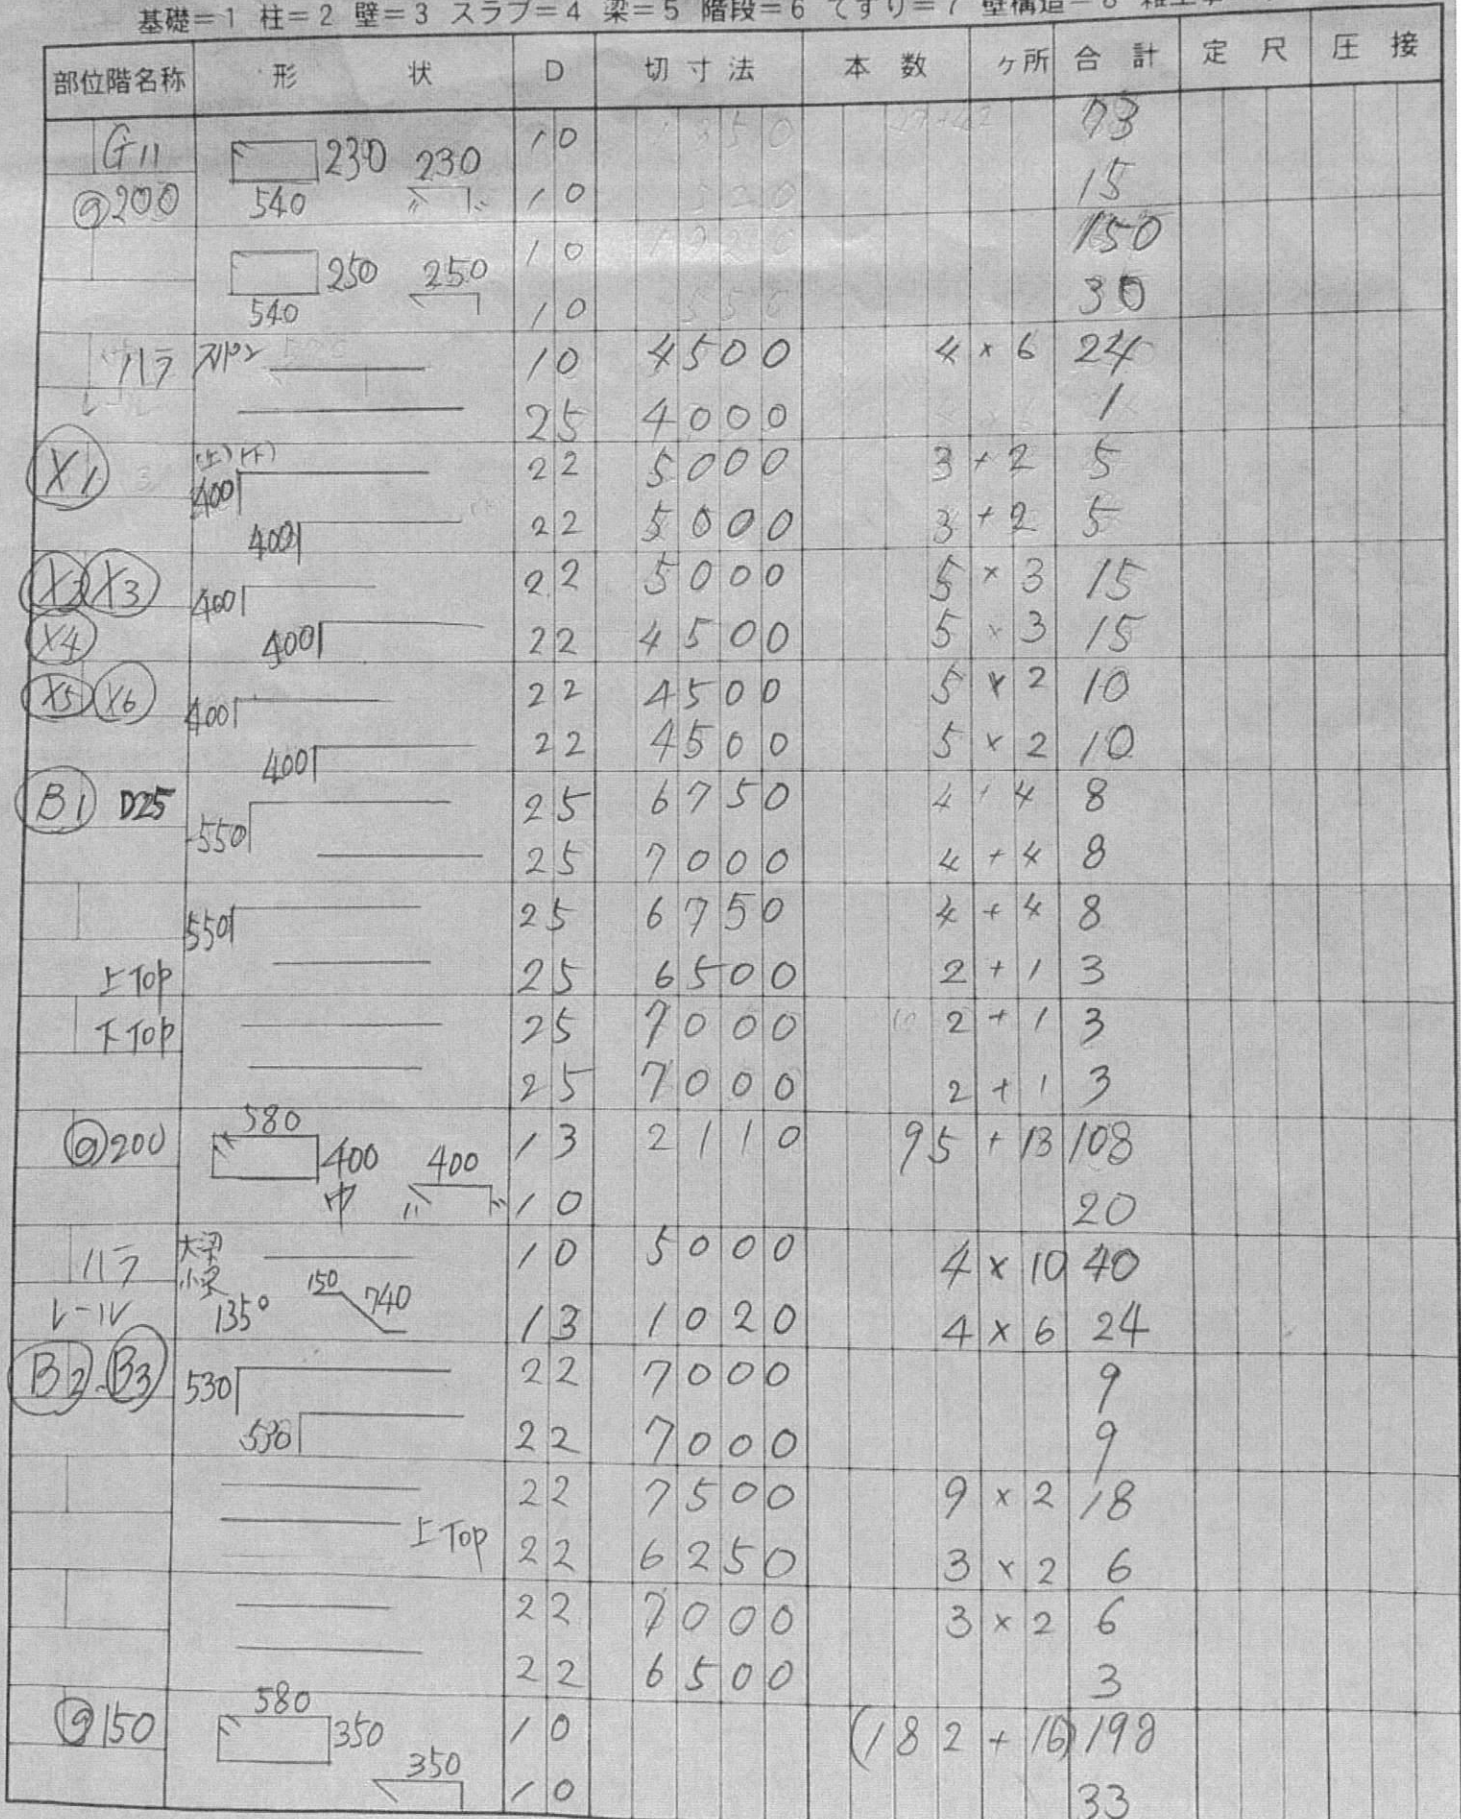 基礎=1 柱=2 壁=3 スラブ=4 梁=5 階段=6 てすり=7 壁構造=8
部位階名称 形 状 D 切寸法 本数 ヶ所 合計 定尺 圧接
G11 230 230 10 73
@200 540 10 15
250 250 10 150
540 10 30
ハラ スパン 10 4500 4×6 24
レール 25 4000 1
X1 (上)(下) 400 22 5000 3+2 5
400 22 5000 3+2 5
X2 X3 400 22 5000 5×3 15
X4 400 22 4500 5×3 15
X5 X6 400 22 4500 5×2 10
400 22 4500 5×2 10
B1 D25 550 25 6750 4+4 8
25 7000 4+4 8
550 25 6750 4+4 8
上Top 25 6500 2+1 3
下Top 25 7000 2+1 3
25 7000 2+1 3
@200 580 400 400 13 2110 95+13 108
中 10 20
ハラ 大梁 小梁 10 5000 4×10 40
レール 135° 150 740 13 1020 4×6 24
B2 B3 530 22 7000 9
530 22 7000 9
22 7500 9×2 18
上Top 22 6250 3×2 6
22 7000 3×2 6
22 6500 3
@150 580 350 10 (182+16) 198
350 10 33